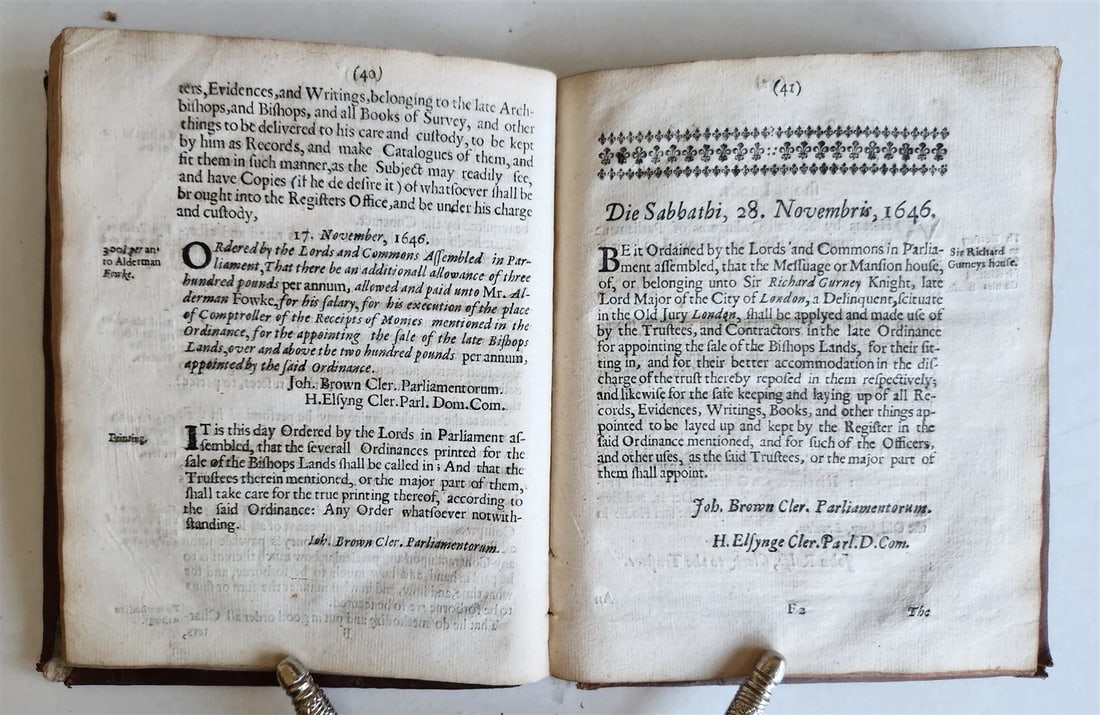 (40)
ters, Evidences, and Writings, belonging to the late Arch-
bishops, and Bishops, and all Books of Survey, and other
things to be delivered to his care and custody, to be kept
by him as Records, and make Catalogues of them, and
fit them in such manner, as the Subject may readily see,
and have Copies (if he de desire it) of whatsoever shall be
brought into the Registers Office, and be under his charge
and custody,
17. November, 1646.
300l per an.
to Alderman
Fowke.
ORdered by the Lords and Commons Assembled in Par-
liament, That there be an additionall allowance of three
hundred pounds per annum, allowed and paid unto Mr. Al-
derman Fowke, for his salary, for his execution of the place
of Comptroller of the Receipts of Monies mentioned in the
Ordinance, for the appointing the sale of the late Bishops
Lands, over and above the two hundred pounds per annum,
appointed by the said Ordinance.
Joh. Brown Cler. Parliamentorum.
H. Elsyng Cler. Parl. Dom. Com.
Printing.
IT is this day Ordered by the Lords in Parliament as-
sembled, that the severall Ordinances printed for the
sale of the Bishops Lands shall be called in; And that the
Trustees therein mentioned, or the major part of them,
shall take care for the true printing thereof, according to
the said Ordinance: Any Order whatsoever notwith-
standing.
Joh. Brown Cler. Parliamentorum.
(41)
Die Sabbathi, 28. Novembris, 1646.
BE it Ordained by the Lords and Commons in Parlia-
ment assembled, that the Messuage or Mansion house,
of, or belonging unto Sir Richard Gurney Knight, late
Lord Major of the City of London, a Delinquent, scituate
in the Old Jury London, shall be applyed and made use of
by the Trustees, and Contractors in the late Ordinance
for appointing the sale of the Bishops Lands, for their sit-
ting in, and for their better accommodation in the dis-
charge of the trust thereby reposed in them respectively;
and likewise for the safe keeping and laying up of all Re-
cords, Evidences, Writings, Books, and other things ap-
pointed to be layed up and kept by the Register in the
said Ordinance mentioned, and for such of the Officers,
and other uses, as the said Trustees, or the major part of
them shall appoint.
Sir Richard
Gurneys house.
Joh. Brown Cler. Parliamentorum.
H. Elsynge Cler. Parl. D. Com.
F2
The